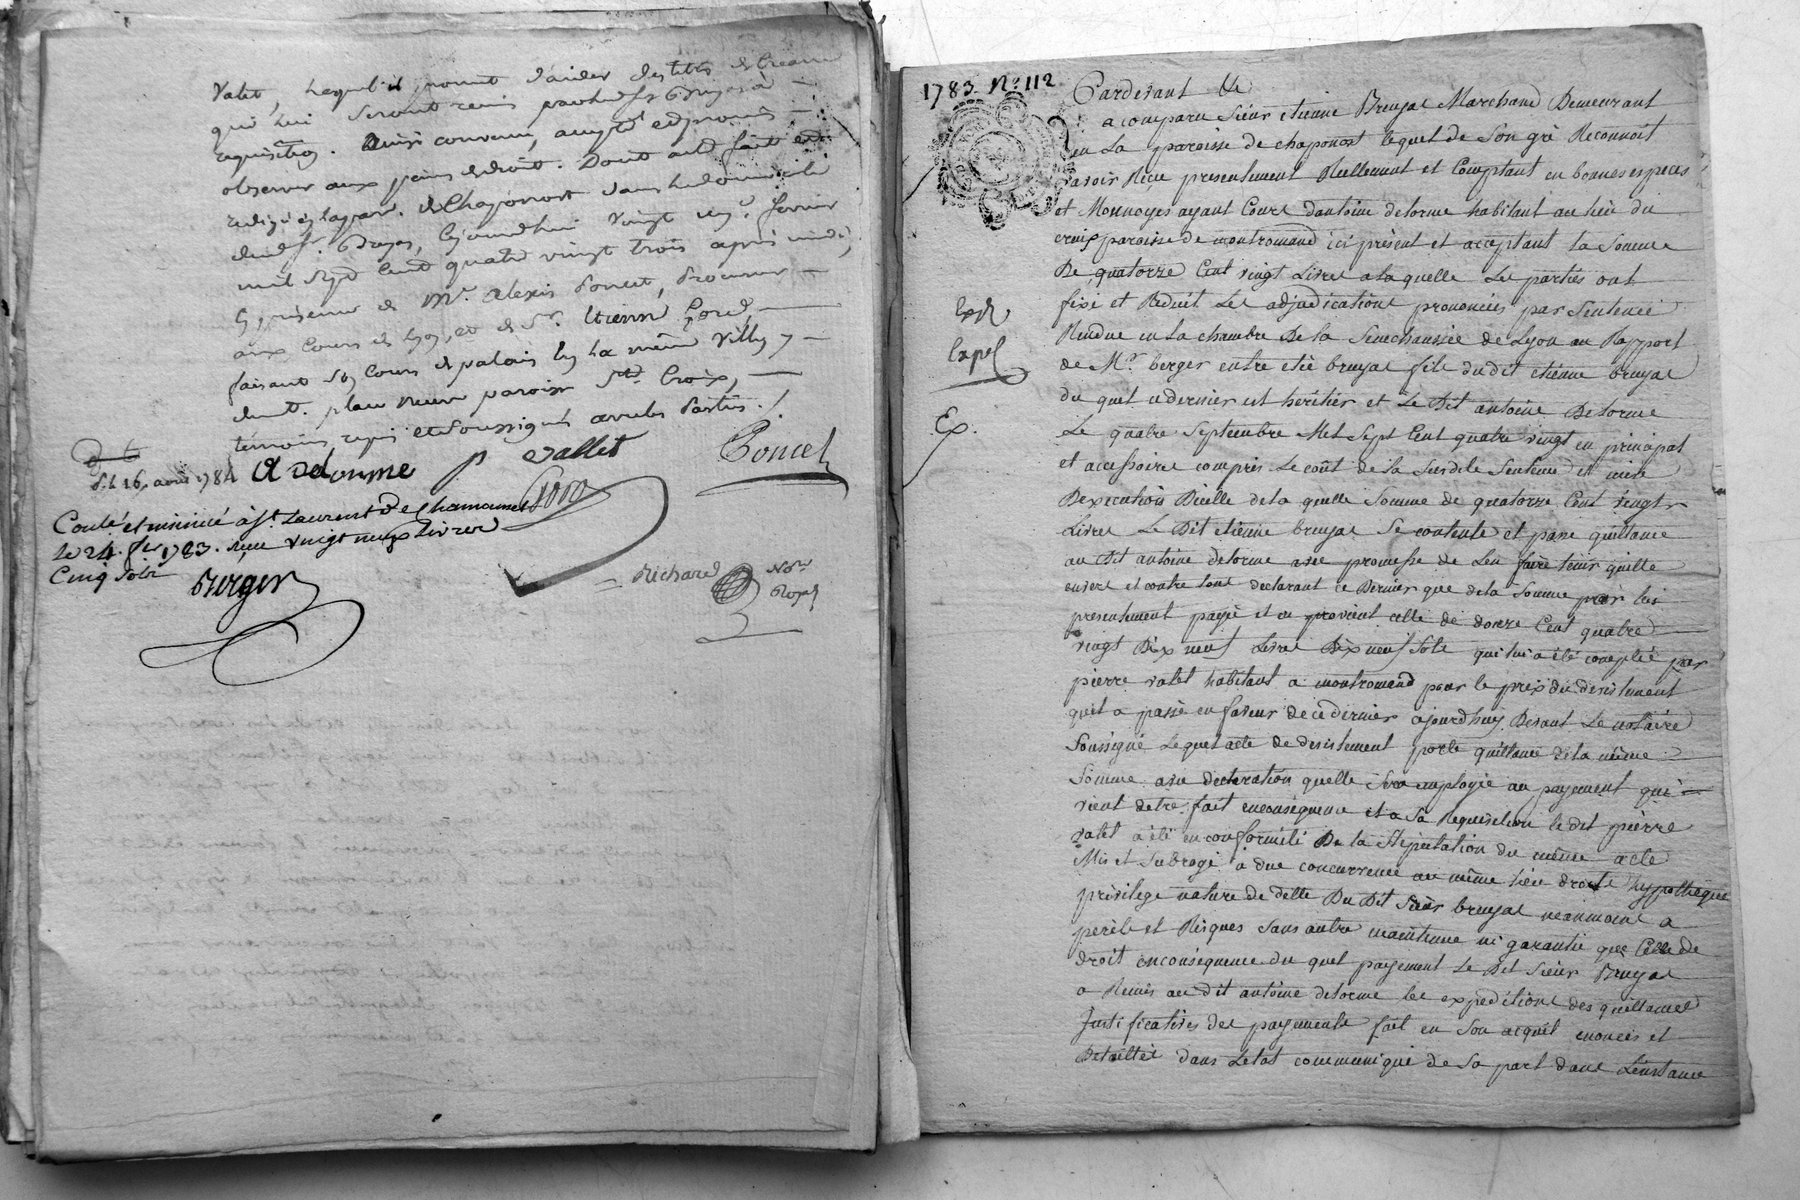 valet, lequel il promet d'aider des titres de creance
qui lui seront remis par le dit sr Bruyas à
requisition. Ainsi convenu, accepté et promis
observer aux peines de droit. Dont acte fait et
redigé en la par. de Chaponost dans le domicile
dudt. sr. Bruyas, cejourdhui vingt un fevrier
mil sept cent quatre vingt trois après midi,
En presence de Mr. alexis Poncet, Procureur
aux Cours de Lyon, et de Sr. Etienne Gord,
faisant cours de palais en la même Ville,
demt. place neuve paroisse Ste. Croix,
témoins requis et Soussignés avec les Parties./.
P valet
Poncet
d. l. 16. avril 1784
A Delorme
Gord
Conlé et insinué à st. Laurent de Chamousset
le 24. fer. 1783. Reçu vingt neuf livres
Cinq sols
Berger
Richard Nore Royal
1783 No. 112
Pardevant &c
a comparu Sieur etienne Bruyas Marchand Demeurant
en La paroisse de chaponost lequel de Son gré Reconnoit
avoir Reçu presentement Réellement et Comptant en bonnes especes
et Monnoyes ayant Cours d'antoine delorme habitant au lieu du
croix paroisse de montromand ici présent et acceptant la Somme
De quatorze Cent vingt Livres a la quelle Les parties ont
fixé et Réduit Les adjudications prononcées par Sentence
Rendue en La chambre De la Senechaussée de Lyon au Rapport
de Mr. berger entre etie bruyas fils du dit etienne bruyas
du quel ce dernier est heritier et Le Dit antoine Delorme
Le quatre Septembre Mil Sept Cent quatre vingt en principal
et accessoire compris Le coût de la Susdite Sentence et mise
Dexecution Dicelle de la quelle Somme de quatorze Cent vingt
Livres Le Dit etienne bruyas Se contente et passe quittance
au Dit antoine delorme avec promesse de Len faire tenir quitte
envers et contre tous declarant ce Dernier que de la Somme par lui
presentement payée et en provient celle de douze Cent quatre
vingt Dix neuf Livres Dix neuf Sols qui lui a été comptée par
pierre valet habitant a montromand pour le prix du desistement
quil a passé en faveur de ce dernier ajourdhuy Devant Le notaire
Soussigné Lequel acte de desistement porte quittance de la même
Somme avec declaration quelle Sera employée au payement qui
vient detre fait enconsequence et a Sa Requisition le dit pierre
valet a été en conformité De la Stipulation du même acte
Mis et Subrogé a due concurrence au même lieu droits hypotheque
privilege nature de dette Du Dit Sieur bruyas neanmoins a
perils et Risques Sans autre maintenue ni garantie que Celle de
droit en consequence du quel payement Le Dit Sieur Bruyas
a Remis au dit antoine delorme les expeditions des quittances
Justificatives des payements fait en Son acquit enoncés et
Detaillés dans Letat communiqué de Sa part dans Linstance
Ex.